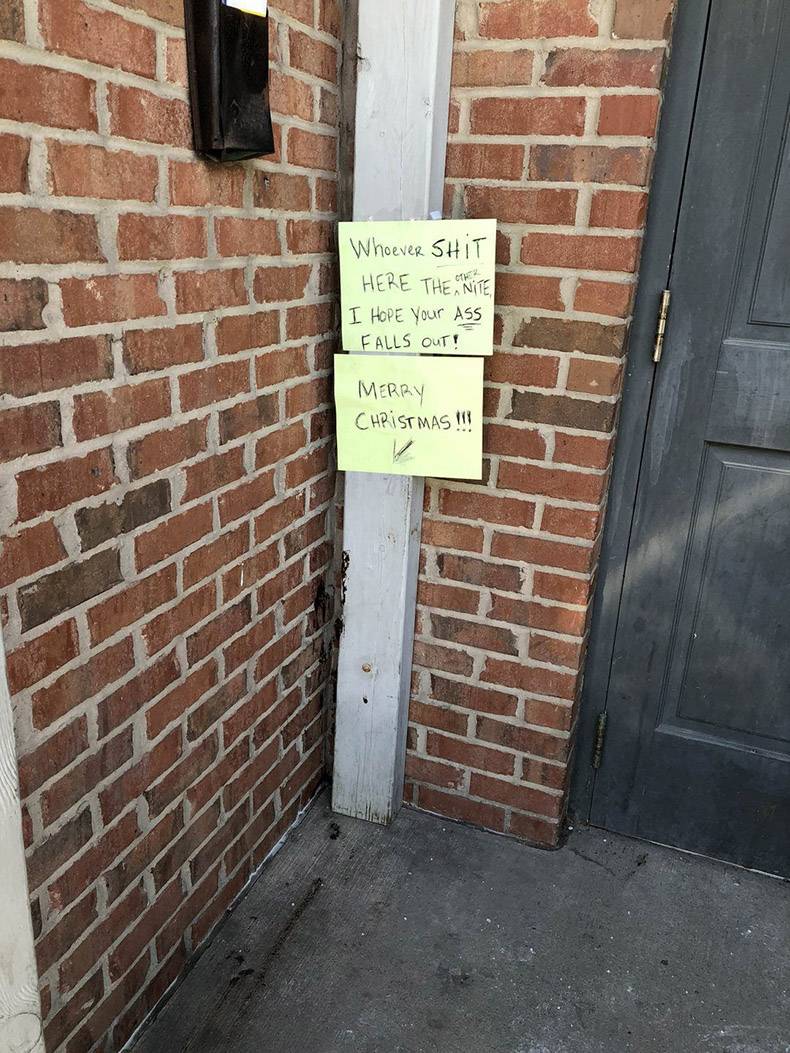 Whoever SHiT
HERE THE OTHER NiTE,
I HOPE Your ASS
FALLS OUT!
MERRY
CHRISTMAS!!!